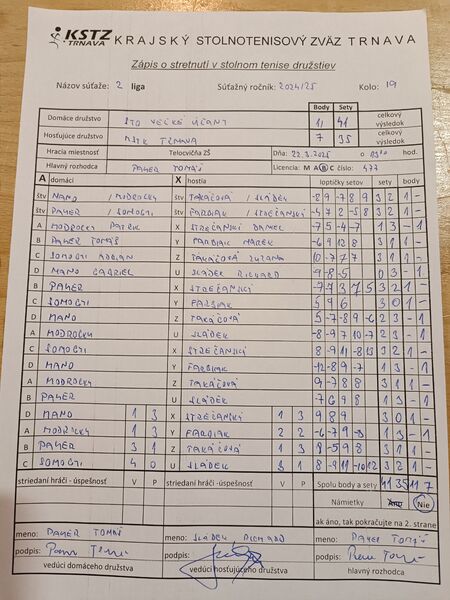 KSTZ TRNAVA KRAJSKÝ STOLNOTENISOVÝ ZVÄZ TRNAVA
Zápis o stretnutí v stolnom tenise družstiev
Názov súťaže: 2 liga Súťažný ročník: 2024/25 Kolo: 19
Body Sety
Domáce družstvo STO VEĽKÉ ÚĽANY 11 41 celkový výsledok
Hosťujúce družstvo MSTK TRNAVA 7 35 celkový výsledok
Hracia miestnosť Telocvičňa ZŠ Dňa: 22.3.2025 o hod.
Hlavný rozhodca PAXER TOMÁŠ Licencia M A B C číslo: 477
A domáci X hostia loptičky setov sety body
štv NANO / MODROCKY štv TAKÁČOVÁ / SLÁDEK -8 9 -7 8 9 3 2 1 -
štv PAXER / SOMOGYI štv FARBIAK / STREČANSKÝ -4 7 2 -5 8 3 2 1 -
A MODROCKY PATRIK X STREČANSKÝ DANIEL -7 5 -4 -7 1 3 - 1
B PAXER TOMÁŠ Y FARBIAK MAREK -6 9 13 8 3 1 1 -
C SOMOGYI ADRIAN Z TAKÁČOVÁ ZUZANA 10 -7 7 7 3 1 1 -
D NANO GABRIEL U SLÁDEK RICHARD -9 -8 -5 0 3 - 1
B PAXER X STREČANSKÝ -7 -7 3 7 5 3 2 1 -
C SOMOGYI Y FARBIAK 5 9 6 3 0 1 -
D NANO Z TAKÁČOVÁ 5 -7 -8 9 -6 2 3 - 1
A MODROCKY U SLÁDEK -8 -9 7 10 -7 2 3 - 1
C SOMOGYI X STREČANSKÝ 8 -9 11 -8 13 3 2 1 -
D NANO Y FARBIAK -12 -8 9 -7 1 3 - 1
A MODROCKY Z TAKÁČOVÁ 9 -7 8 8 3 1 1 -
B PAXER U SLÁDEK 7 6 9 8 3 1 1 -
D NANO 1 3 X STREČANSKÝ 1 3 9 8 9 3 0 1 -
A MODROCKY 1 3 Y FARBIAK 2 2 -6 -7 9 -3 1 3 - 1
B PAXER 3 1 Z TAKÁČOVÁ 1 3 8 -5 9 8 3 1 1 -
C SOMOGYI 4 0 U SLÁDEK 3 1 8 -9 11 -10 12 3 2 1 -
striedaní hráči - úspešnosť V P striedaní hráči - úspešnosť V P Spolu body a sety 41 35 11 7
Námietky Áno Nie
ak áno, tak pokračujte na 2. strane
meno: PAXER TOMÁŠ meno: SLÁDEK RICHARD meno: PAXER TOMÁŠ
podpis: podpis: podpis:
vedúci domáceho družstva vedúci hosťujúceho družstva hlavný rozhodca